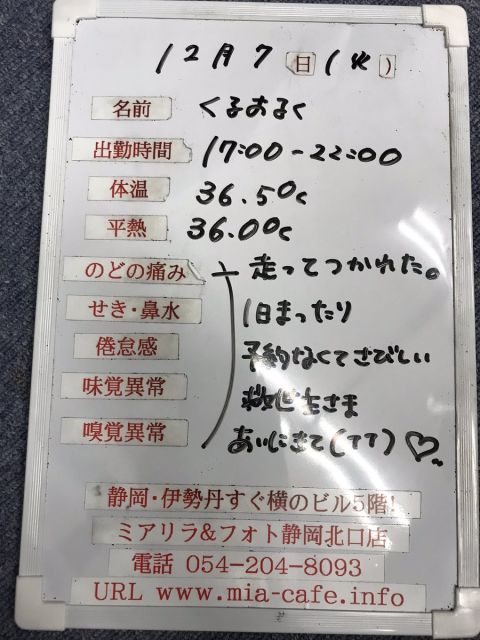 12月7日(火)
名前 くるみるく
出勤時間 17:00-22:00
体温 36.5℃
平熱 36.0℃
のどの痛み 走ってつかれた。
せき・鼻水 1日まったり
倦怠感 予約なくてさびしい
味覚異常 救世主さま
嗅覚異常 あいにきて(TT)♡
静岡・伊勢丹すぐ横のビル5階!
ミアリラ&フォト静岡北口店
電話 054-204-8093
URL www.mia-cafe.info